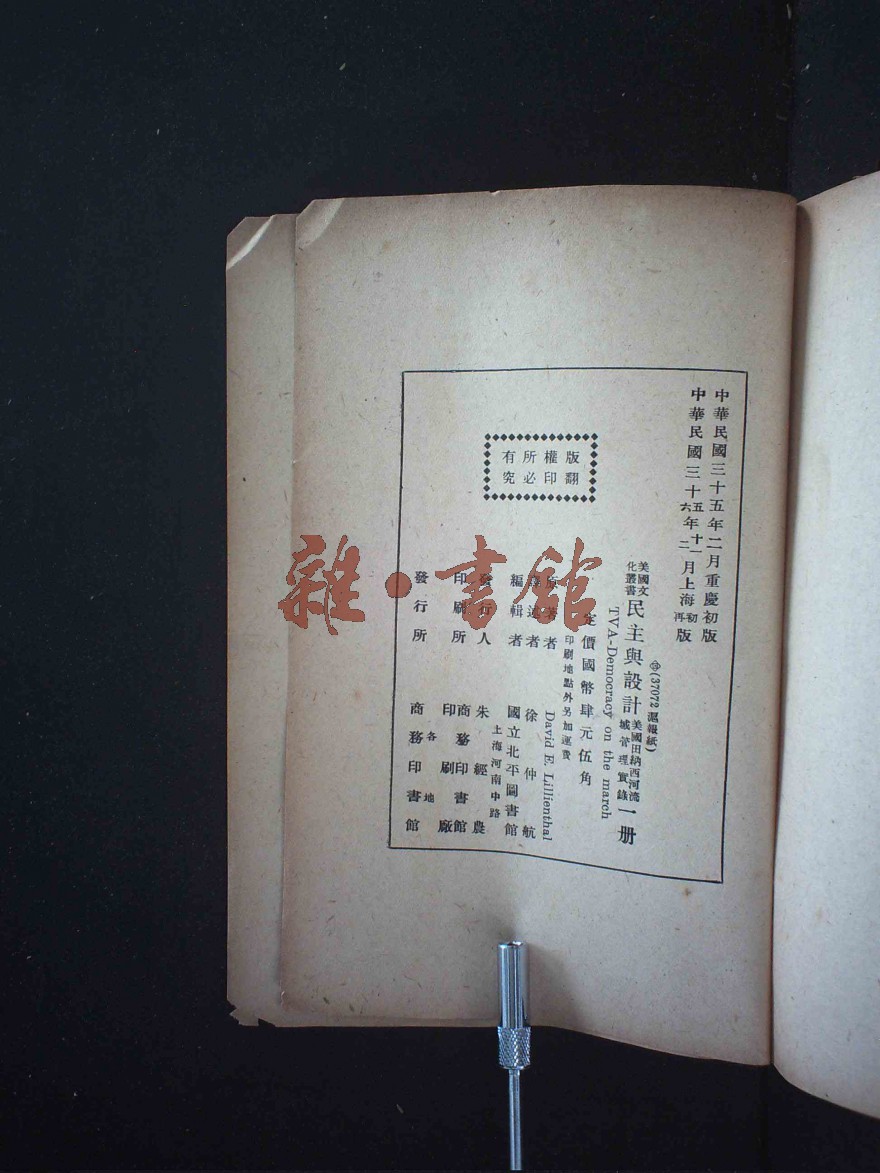 中華民國三十五年二月重慶初版
中華民國三十五年十一月上海初版
六 二 再
㊄(37072滬報紙)
美國文化叢書 民主與設計 美國田納西河流域管理實錄 一册
TVA-Democracy on the march
定價國幣肆元伍角
印刷地點外另加運費
版權所有
翻印必究
原著者 David E. Lillienthal
譯述者 徐仲航
編輯者 國立北平圖書館
上海河南中路
發行人 朱經農
印刷所 商務印書館印刷廠
發行所 各地商務印書館
雜·書館